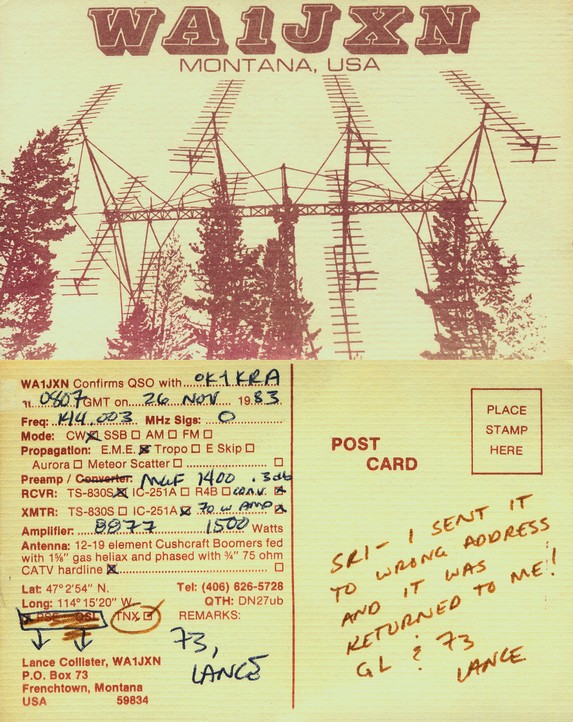 WA1JXN
MONTANA, USA
WA1JXN Confirms QSO with OK1KRA
0807 GMT on 26 NOV 1983
Freq: 144.003 MHz Sigs: O
Mode: CW☒ SSB☐ AM☐ FM☐
Propagation: E.M.E.☒ Tropo☐ E Skip☐
Aurora☐ Meteor Scatter☐ ☐
Preamp / Converter: MGF 1400 .3db
RCVR: TS-830S☒ IC-251A☐ R4B☐ conv. ☒
XMTR: TS-830S☐ IC-251A☒ 70 W AMP ☒
Amplifier: 8877 1500 Watts
Antenna: 12-19 element Cushcraft Boomers fed
with 1⅝" gas heliax and phased with ¾" 75 ohm
CATV hardline☒ ☐
Lat: 47° 2'54" N. Tel: (406) 626-5728
Long: 114° 15'20" W. QTH: DN27ub
☒ PSE QSL TNX☑ REMARKS:
73,
LANCE
Lance Collister, WA1JXN
P.O. Box 73
Frenchtown, Montana
USA 59834
POST
CARD
PLACE
STAMP
HERE
SRI - I SENT IT
TO WRONG ADDRESS
AND IT WAS
RETURNED TO ME!
GL & 73
LANCE